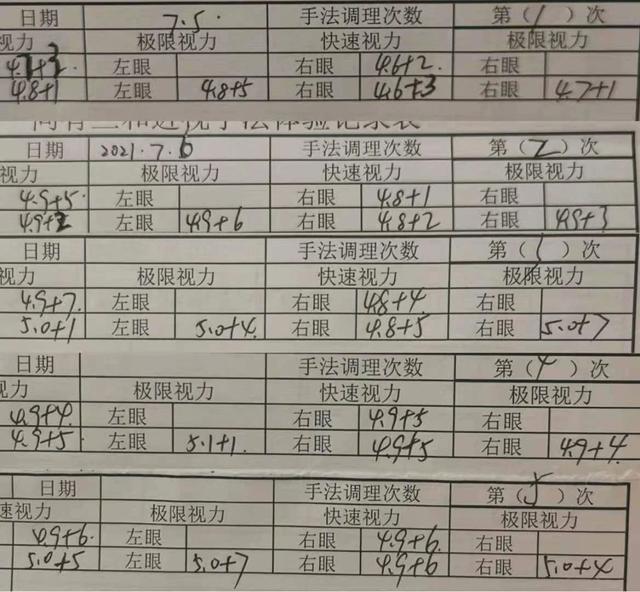 日期 7.5. 手法调理次数 第(1)次
视力 极限视力 快速视力 极限视力
左眼 右眼 4.6+2. 右眼
4.8+1 左眼 4.8+5 右眼 4.6+3 右眼 4.7+1
向有三和近视手法体验记录表
日期 2021.7.6 手法调理次数 第(2)次
视力 极限视力 快速视力 极限视力
4.9+5. 左眼 右眼 4.8+1 右眼
4.9+2 左眼 4.9+6 右眼 4.8+2 右眼 4.9+3
日期 手法调理次数 第( )次
视力 极限视力 快速视力 极限视力
4.9+7. 左眼 右眼 4.8+4 右眼
5.0+1 左眼 5.0+4. 右眼 4.8+5 右眼 5.0+7
日期 手法调理次数 第(4)次
视力 极限视力 快速视力 极限视力
4.9+4. 左眼 右眼 4.9+5 右眼
4.9+5. 左眼 5.1+1. 右眼 4.9+5 右眼 4.9+4.
日期 手法调理次数 第(5)次
速视力 极限视力 快速视力 极限视力
4.9+6. 左眼 右眼 4.9+6. 右眼
5.0+5 左眼 5.0+7 右眼 4.9+6 右眼 5.0+4